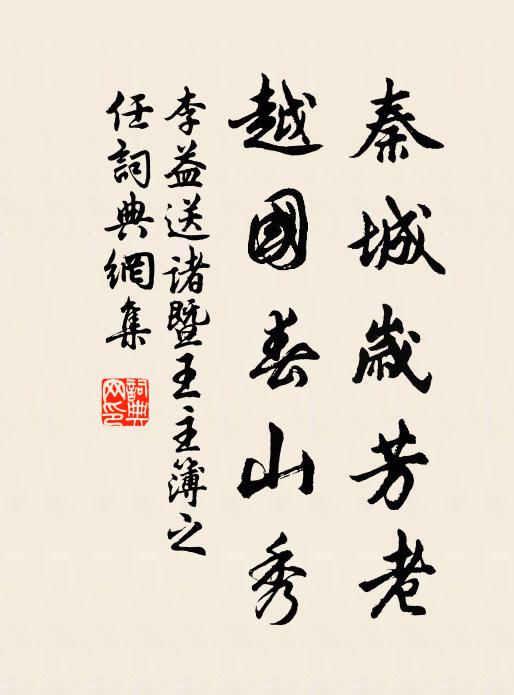 秦城歲芳老
越國春山秀
李益送諸暨王主簿之
任詞典網集
詞典
网印